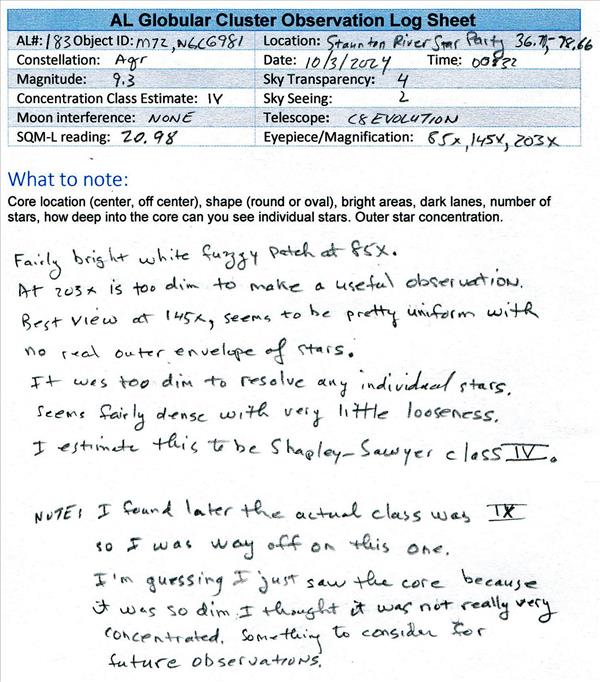 AL Globular Cluster Observation Log Sheet
AL#: 183 Object ID: M72, NGC6981 Location: Staunton River Star Party 36.71, -78.66
Constellation: Aqr Date: 10/3/2024 Time: 00832
Magnitude: 9.3 Sky Transparency: 4
Concentration Class Estimate: IV Sky Seeing: 2
Moon interference: NONE Telescope: C8 EVOLUTION
SQM-L reading: 20.98 Eyepiece/Magnification: 85x, 145x, 203x
What to note:
Core location (center, off center), shape (round or oval), bright areas, dark lanes, number of
stars, how deep into the core can you see individual stars. Outer star concentration.
Fairly bright white fuzzy patch at 85x.
At 203x is too dim to make a useful observation.
Best view at 145x, seems to be pretty uniform with
no real outer envelope of stars.
It was too dim to resolve any individual stars.
Seems fairly dense with very little looseness.
I estimate this to be Shapley-Sawyer class IV.
NOTE: I found later the actual class was IX
so I was way off on this one.
I'm guessing I just saw the core because
it was so dim. I thought it was not really very
concentrated. Something to consider for
future observations.